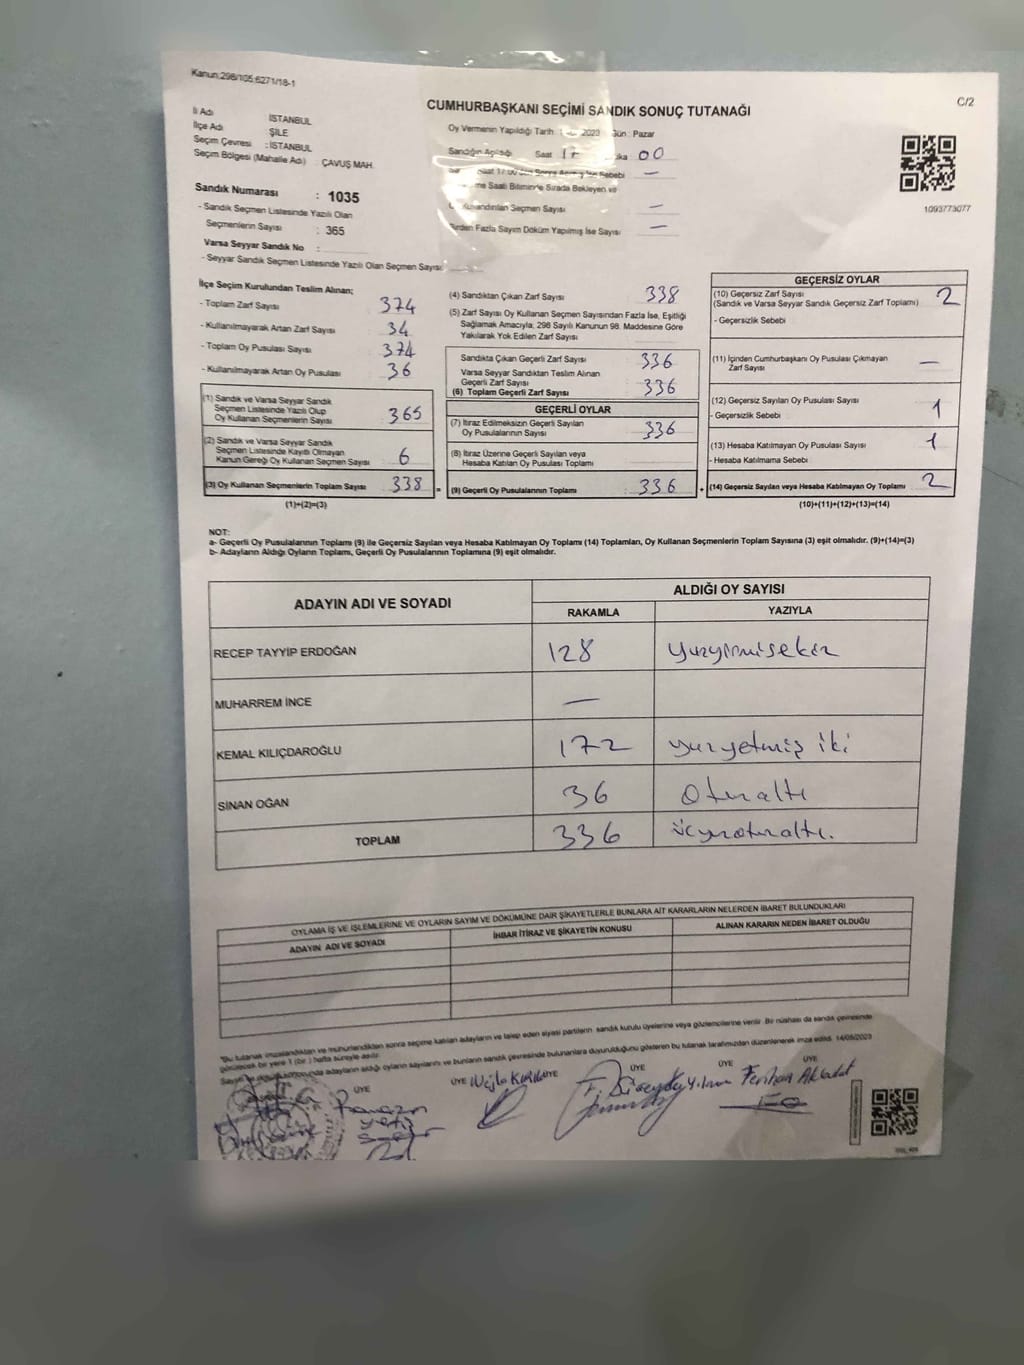 Kanun:298/105;6271/18-1
C/2
CUMHURBAŞKANI SEÇİMİ SANDIK SONUÇ TUTANAĞI
İl Adı : İSTANBUL
İlçe Adı : ŞİLE
Seçim Çevresi : İSTANBUL
Seçim Bölgesi (Mahalle Adı) : ÇAVUŞ MAH.
Sandık Numarası : 1035
- Sandık Seçmen Listesinde Yazılı Olan
Seçmenlerin Sayısı : 365
Varsa Seyyar Sandık No :
- Seyyar Sandık Seçmen Listesinde Yazılı Olan Seçmen Sayısı
Oy Vermenin Yapıldığı Tarih 2023 Gün : Pazar
Sandığın Açıldığı Saat 17 00
Sebebi —
Saati Bitiminde Sırada Bekleyen ve
Kullandırılan Seçmen Sayısı —
Birden Fazla Sayım Döküm Yapılmış İse Sayısı —
1093773077
İlçe Seçim Kurulundan Teslim Alınan;
- Toplam Zarf Sayısı 374
- Kullanılmayarak Artan Zarf Sayısı 34
- Toplam Oy Pusulası Sayısı 374
- Kullanılmayarak Artan Oy Pusulası 36
(1) Sandık ve Varsa Seyyar Sandık
Seçmen Listesinde Yazılı Olup
Oy Kullanan Seçmenlerin Sayısı 365
(2) Sandık ve Varsa Seyyar Sandık
Seçmen Listesinde Kayıtlı Olmayan
Kanun Gereği Oy Kullanan Seçmen Sayısı 6
(3) Oy Kullanan Seçmenlerin Toplam Sayısı 338
=
(1)+(2)=(3)
(4) Sandıktan Çıkan Zarf Sayısı 338
(5) Zarf Sayısı Oy Kullanan Seçmen Sayısından Fazla İse, Eşitliği
Sağlamak Amacıyla, 298 Sayılı Kanunun 98. Maddesine Göre
Yakılarak Yok Edilen Zarf Sayısı
Sandıkta Çıkan Geçerli Zarf Sayısı 336
Varsa Seyyar Sandıktan Teslim Alınan
Geçerli Zarf Sayısı
(6) Toplam Geçerli Zarf Sayısı 336
GEÇERLİ OYLAR
(7) İtiraz Edilmeksizin Geçerli Sayılan
Oy Pusulalarının Sayısı 336
(8) İtiraz Üzerine Geçerli Sayılan veya
Hesaba Katılan Oy Pusulası Toplamı
(9) Geçerli Oy Pusulalarının Toplamı : 336
+
GEÇERSİZ OYLAR
(10) Geçersiz Zarf Sayısı 2
(Sandık ve Varsa Seyyar Sandık Geçersiz Zarf Toplamı)
- Geçersizlik Sebebi
(11) İçinden Cumhurbaşkanı Oy Pusulası Çıkmayan —
Zarf Sayısı
(12) Geçersiz Sayılan Oy Pusulası Sayısı 1
- Geçersizlik Sebebi
(13) Hesaba Katılmayan Oy Pusulası Sayısı 1
- Hesaba Katılmama Sebebi
(14) Geçersiz Sayılan veya Hesaba Katılmayan Oy Toplamı 2
(10)+(11)+(12)+(13)=(14)
NOT:
a- Geçerli Oy Pusulalarının Toplamı (9) ile Geçersiz Sayılan veya Hesaba Katılmayan Oy Toplamı (14) Toplamları, Oy Kullanan Seçmenlerin Toplam Sayısına (3) eşit olmalıdır. (9)+(14)=(3)
b- Adayların Aldığı Oyların Toplamı, Geçerli Oy Pusulalarının Toplamına (9) eşit olmalıdır.
ADAYIN ADI VE SOYADI
ALDIĞI OY SAYISI
RAKAMLA YAZIYLA
RECEP TAYYİP ERDOĞAN 128 yüzyirmisekiz
MUHARREM İNCE —
KEMAL KILIÇDAROĞLU 172 yüzyetmiş iki
SİNAN OĞAN 36 otuzaltı
TOPLAM 336 üçyüzotuzaltı.
OYLAMA İŞ VE İŞLEMLERİNE VE OYLARIN SAYIM VE DÖKÜMÜNE DAİR ŞİKAYETLERLE BUNLARA AİT KARARLARIN NELERDEN İBARET BULUNDUKLARI
ADAYIN ADI VE SOYADI İHBAR İTİRAZ VE ŞİKAYETİN KONUSU ALINAN KARARIN NEDEN İBARET OLDUĞU
"Bu tutanak imzalandıktan ve mühürlendikten sonra seçime katılan adayların ve talep eden siyasi partilerin sandık kurulu üyelerine veya gözlemcilerine verilir. Bir nüshası da sandık çevresinde
görülecek bir yere 1 (bir) hafta süreyle asılır.
adayların aldığı oyların sayılarını ve bunların sandık çevresinde bulunanlara duyurulduğunu gösteren bu tutanak tarafımızdan düzenlenerek imza edildi. 14/05/2023
ÜYE ÜYE ÜYE ÜYE ÜYE
Ramazan
Ferihan